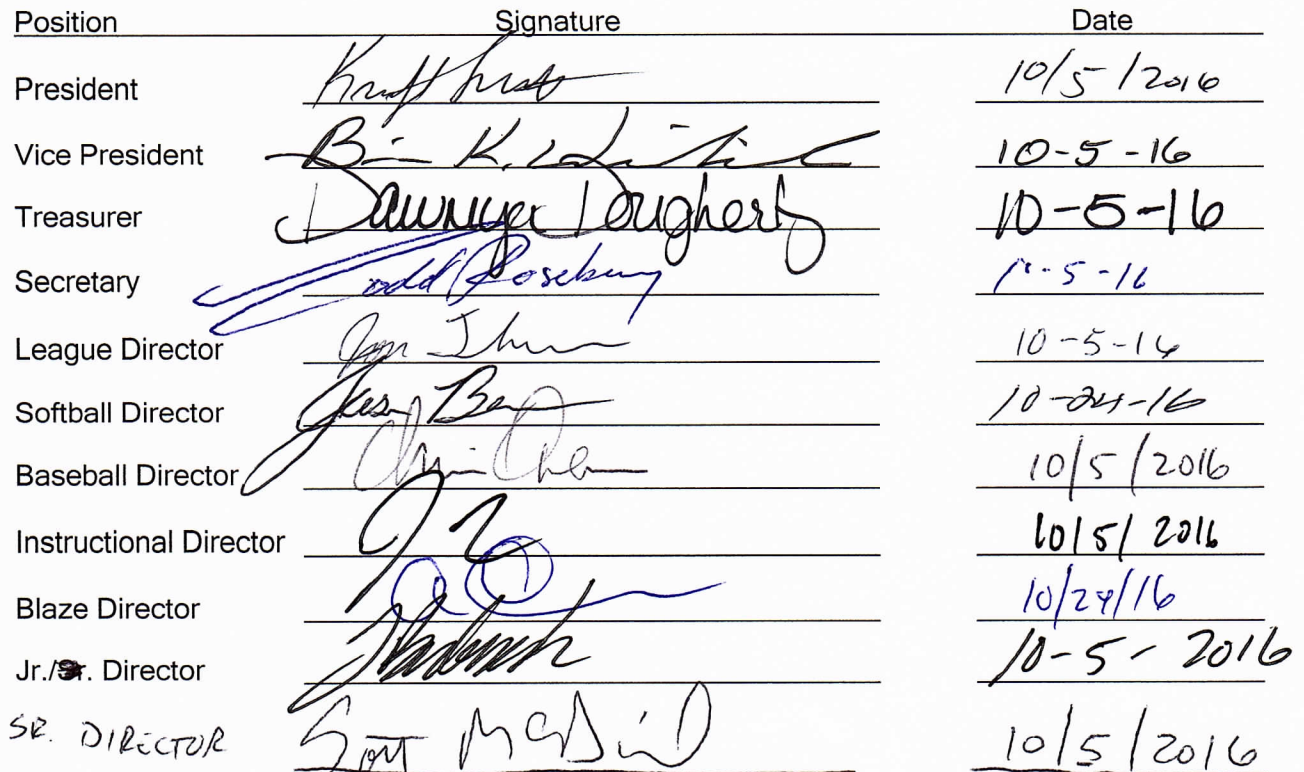 Position Signature Date
President 10/5/2016
Vice President K. 10-5-16
Treasurer Dawnya Dougherty 10-5-16
Secretary Todd Rosebury 10-5-16
League Director 10-5-16
Softball Director 10-24-16
Baseball Director 10/5/2016
Instructional Director 10/5/2016
Blaze Director 10/24/16
Jr./Sr. Director 10-5-2016
SR. DIRECTOR Scott 10/5/2016